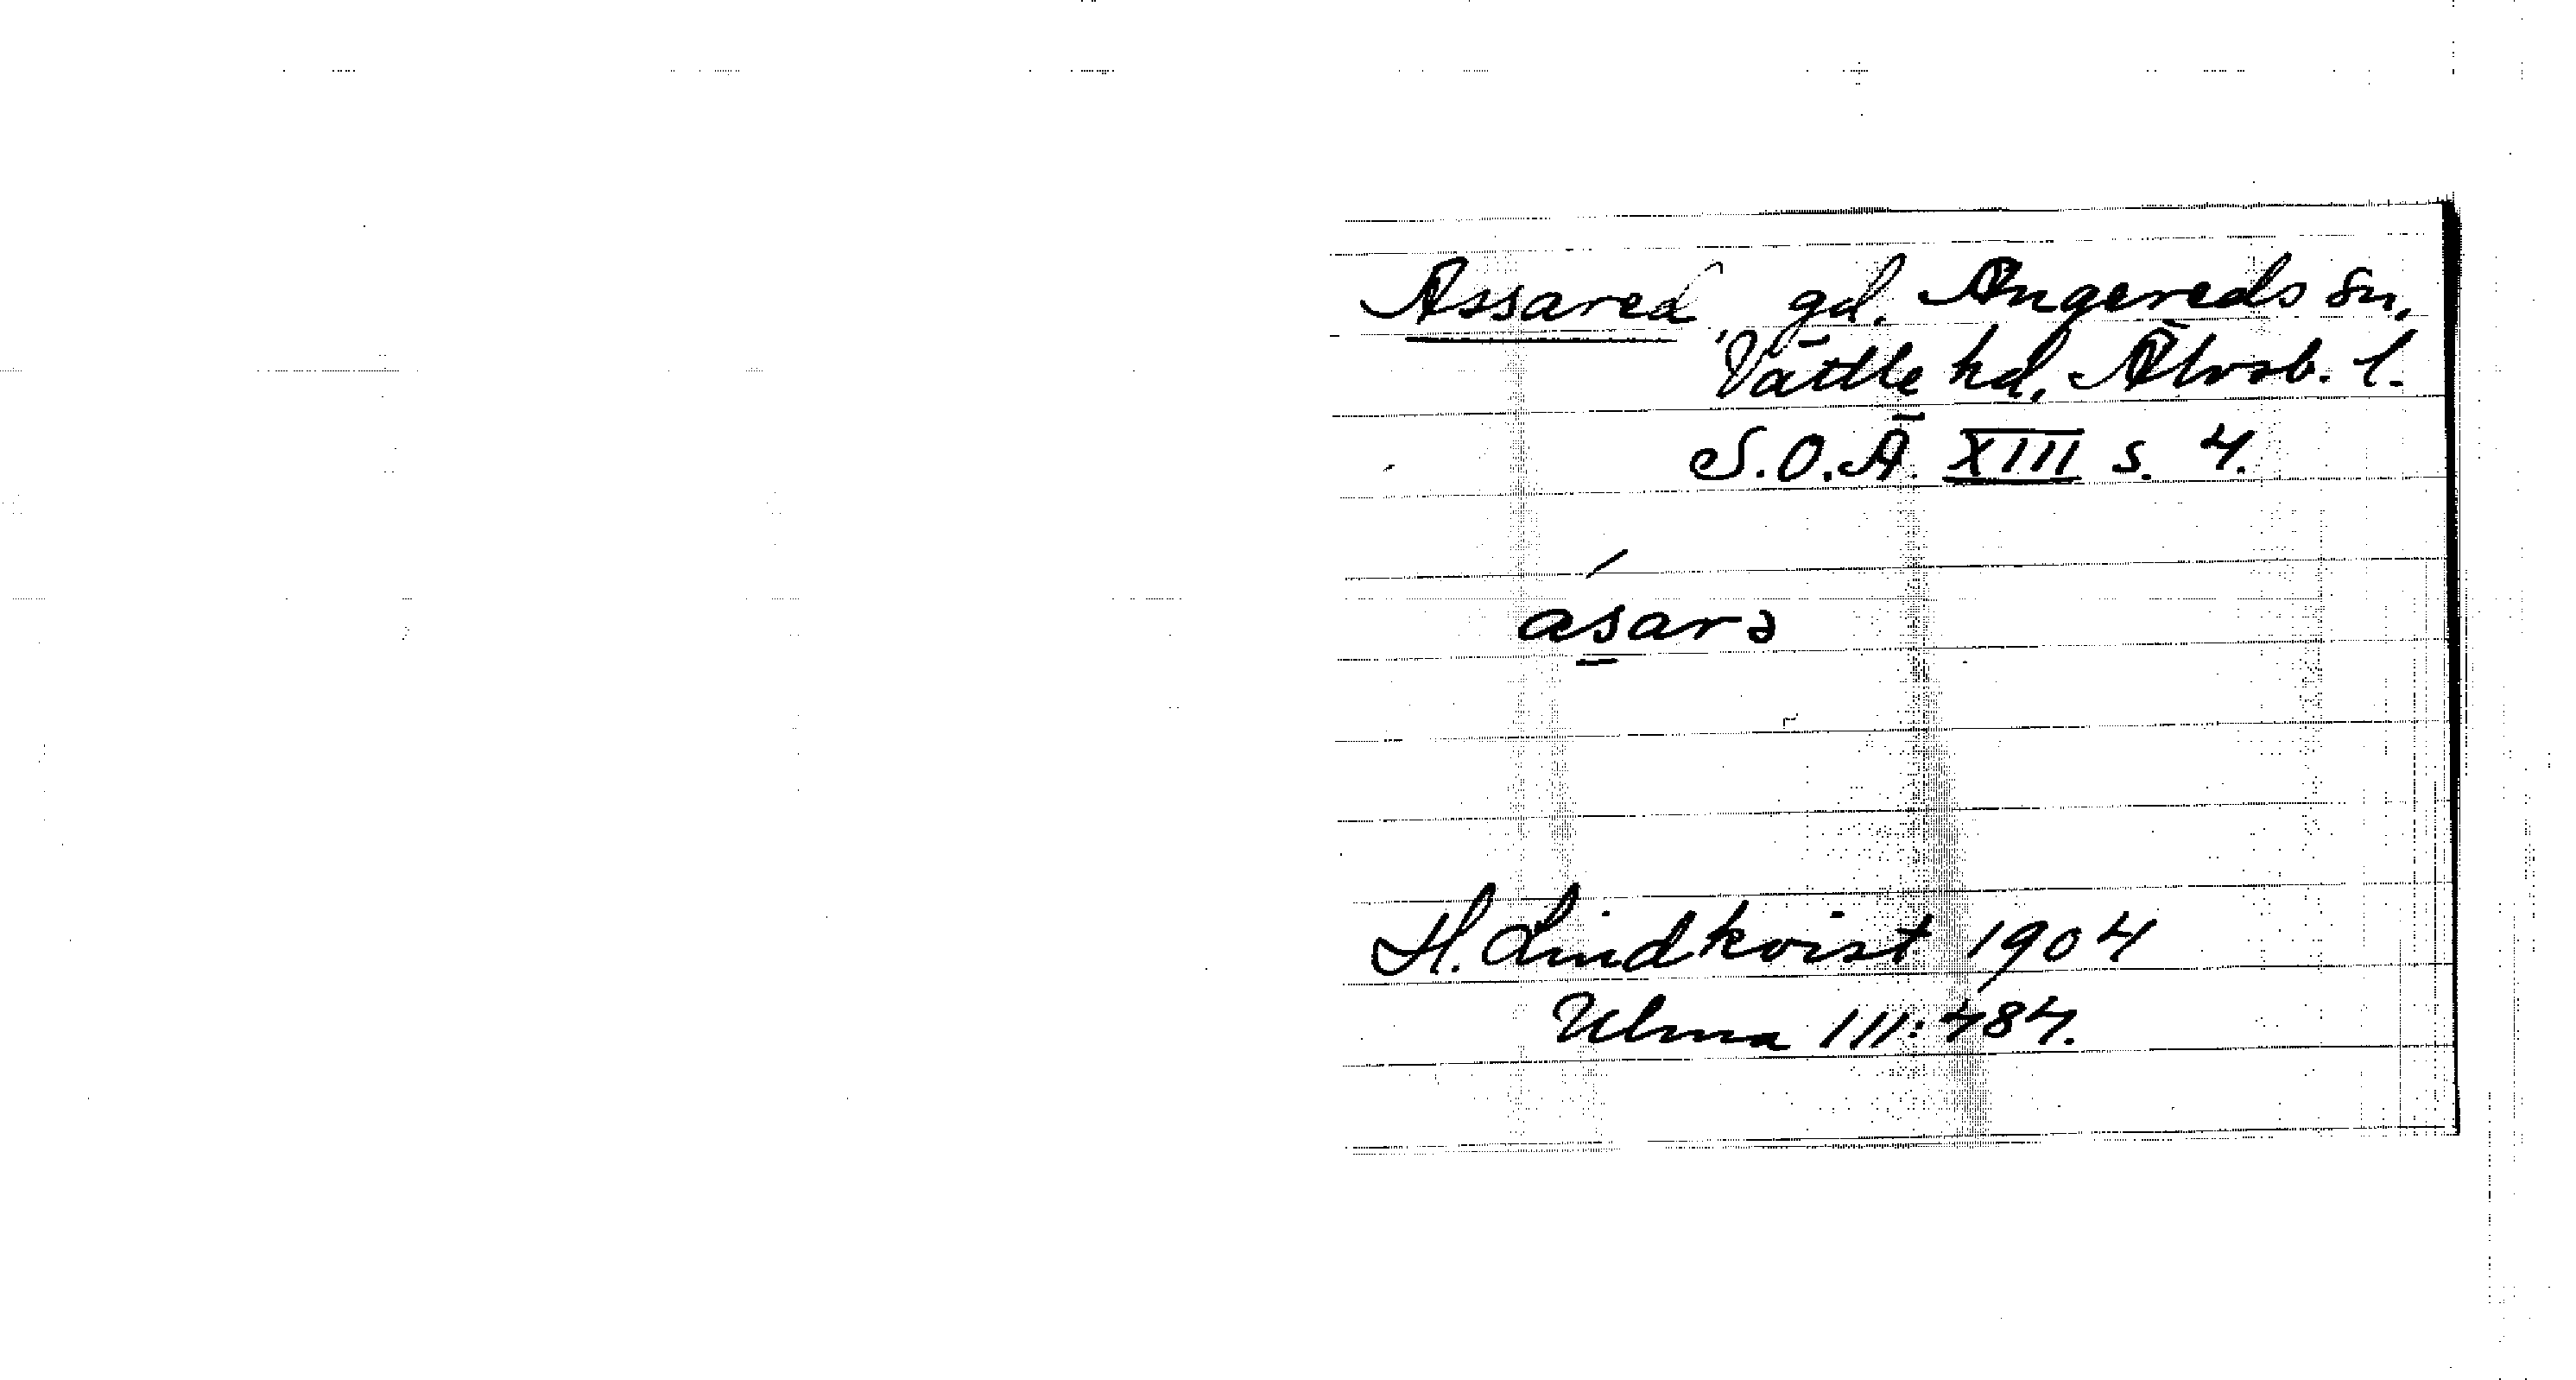 Assared, gd. Angereds sn,
Vättle hd, Älvsb. l.
S.O.Ä. XIII s. 4.
ásarə
H. Lindkvist 1904
Ulma III: 484.